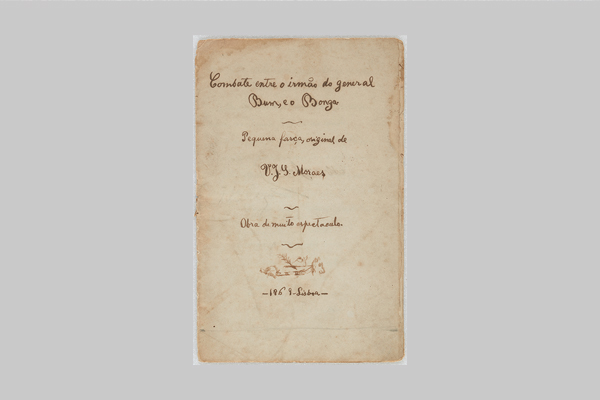 Combate entre o irmão do general
Bum, e o Bonga
Pequena farça, original de
V. J. S. Moraes
Obra de muito espectaculo.
— 1869 — Lisboa —